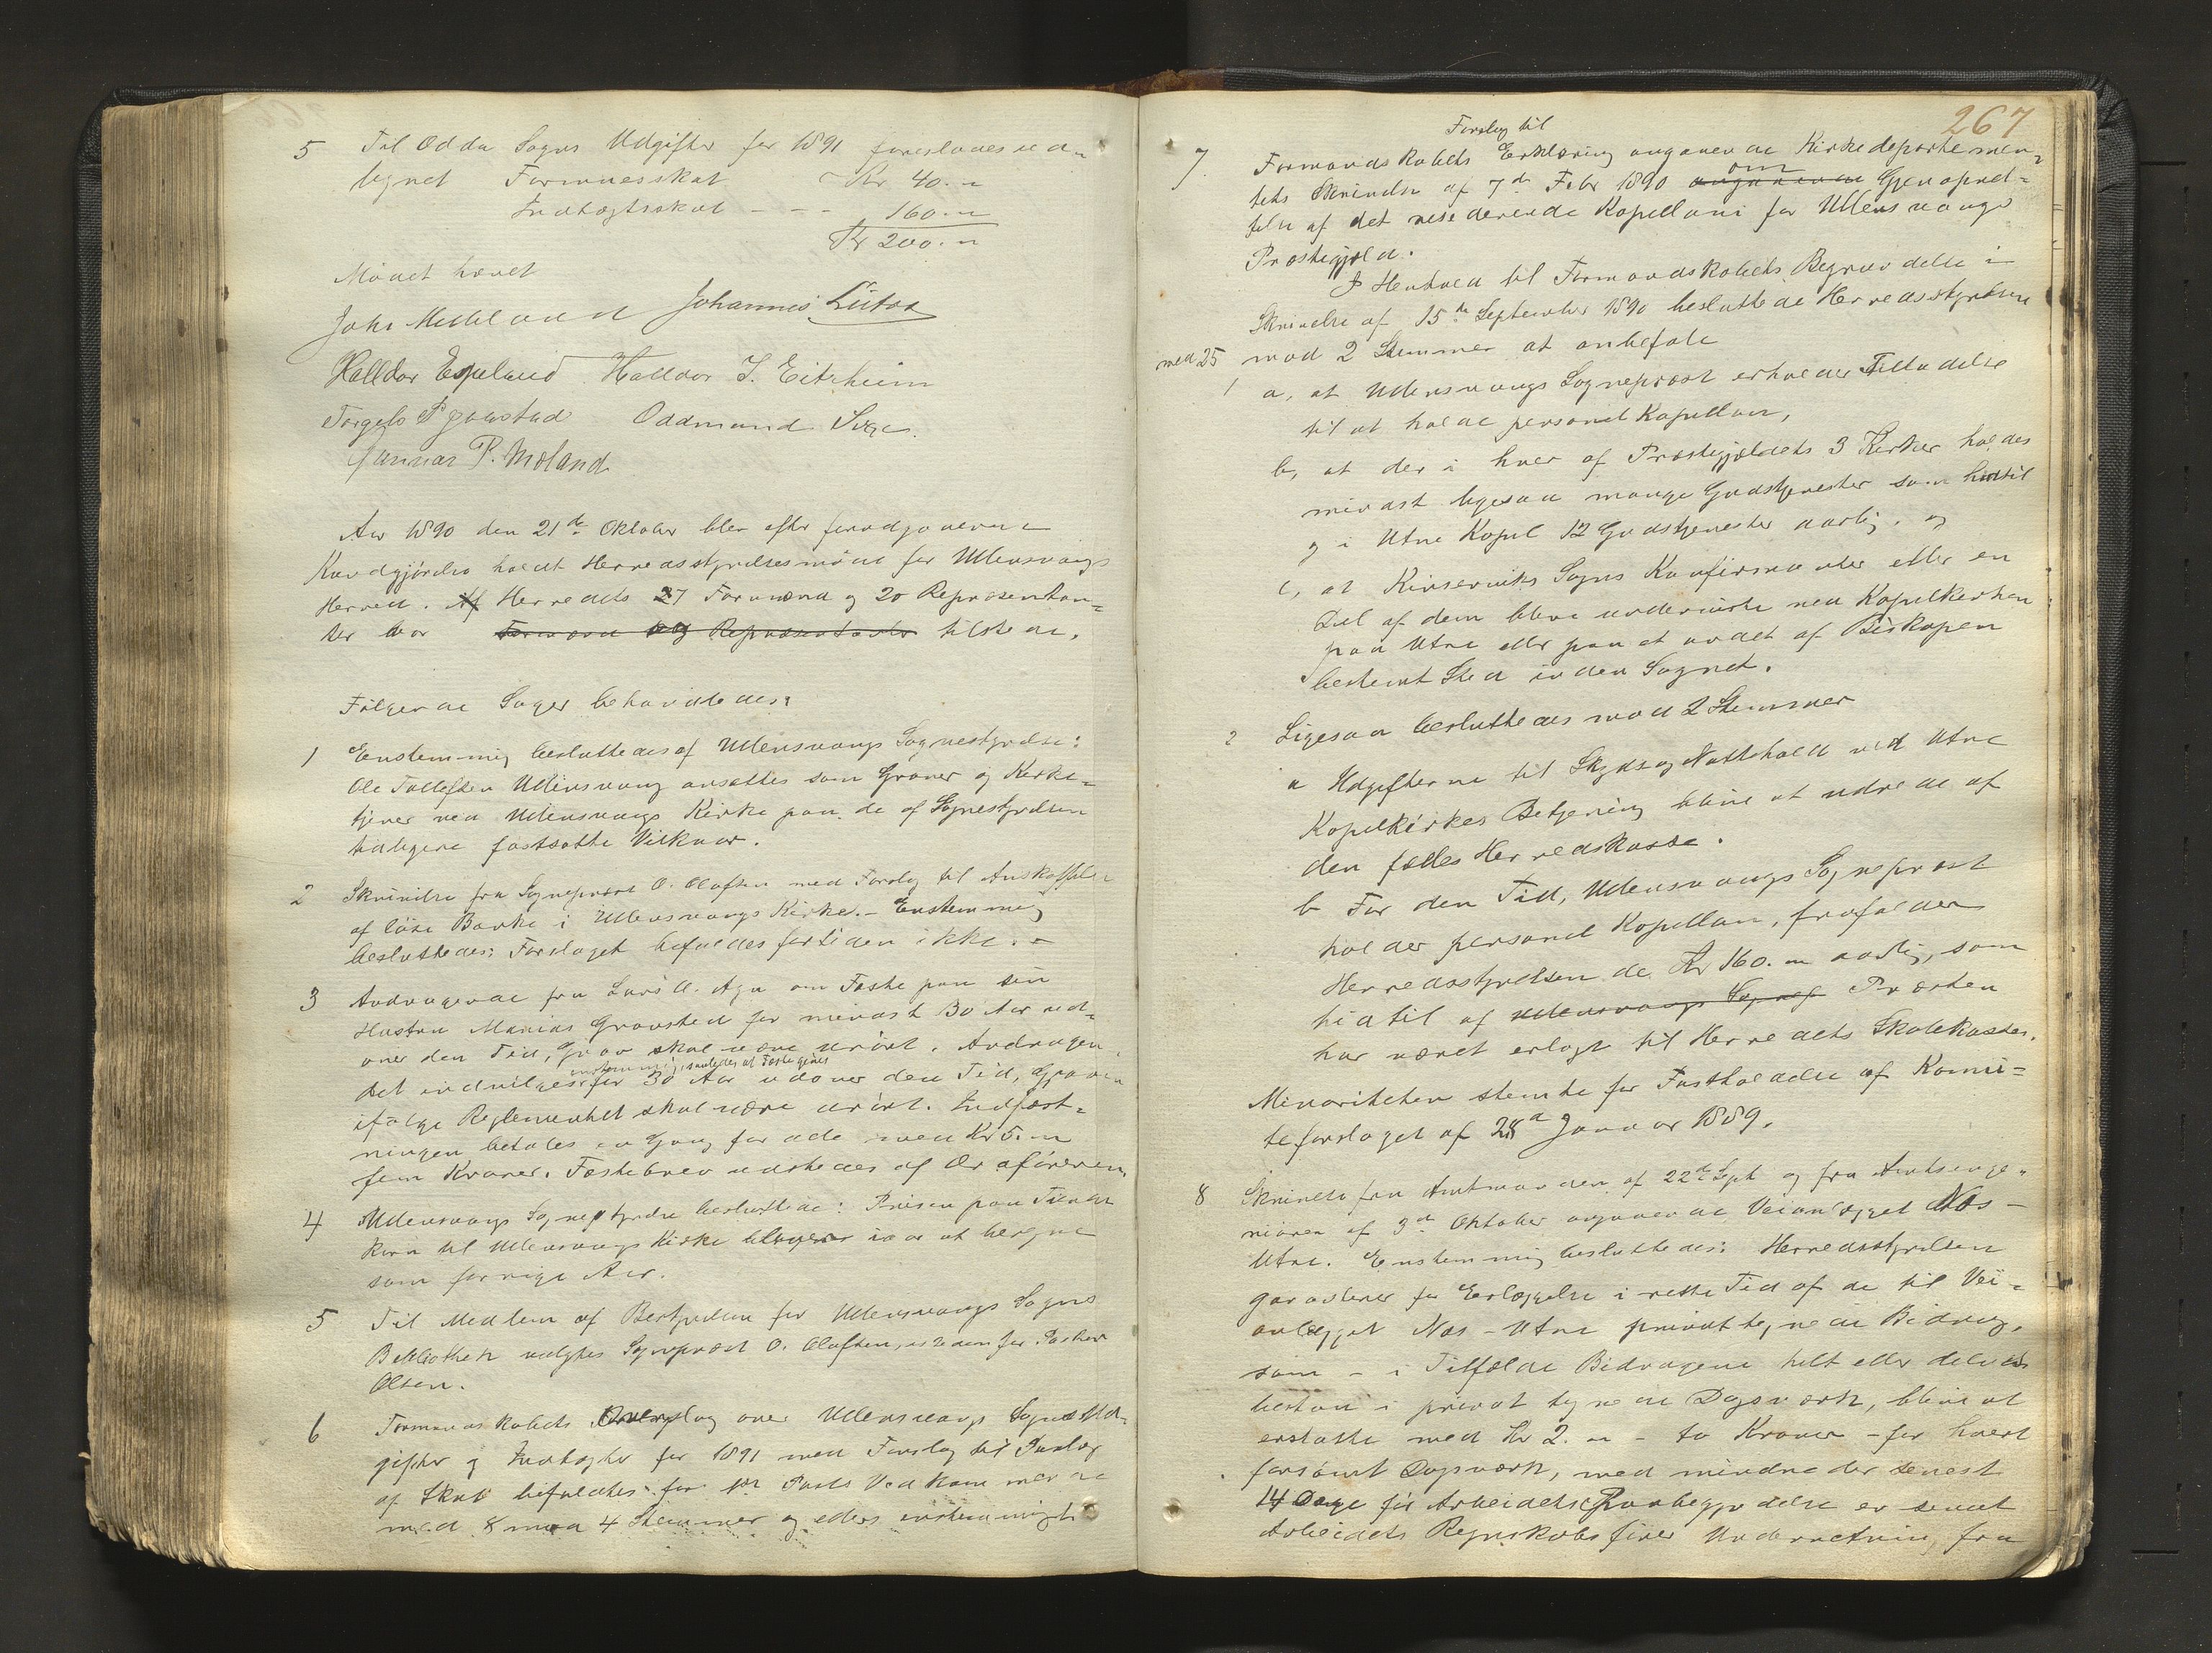 5 Til Odda Sogns Udgifter for 1891 foreslaaes ud-
lignet Formuesskat Kr 40. "
Indtægtsskat - - - 160. "
Kr 200. "
Mödet hævet
Johs Meeland Johannes Lutro
Halldor Espeland Halldor J. Eitrheim
Torgels P Jaastad Oddmund
Gunnar P. Moland
Aar 1890 den 21de Oktober blev efter forudgaaende
Kundgjörelse holdt Herredsstyrelsesmöde for Ullensvangs
Herred. Af Herredets 7 Formænd og 20 Repræsentan-
ter var Formænd og Repræsentanter tilstede.
Fölgende Sager behandledes:
1 Enstemmig besluttedes af Ullensvangs Sognestyrelse:
Ole Tollefsen Ullensvang ansættes som Graver og Kirke-
tjener ved Ullensvangs Kirke paa de af Sognestyrelsen
tidligere fastsatte Vilkaar.
2 Skrivelse fra Sogneprest O. Olafsen med Forslag til Anskaffelse
af löse Bænke i Ullensvangs Kirke. - Enstemmig
besluttedes: Forslaget bifaldes fortiden ikke. -
3 Andragende fra Lars A. Aga om Fæste paa sin
Hustru Marias Gravsted for mindst 30 Aar ud-
over den Tid, Grav skal være urört. Andragen-
enstemmig, saaledes at Fæste gives
det indvilges for 30 Aar udover den Tid, Graven
ifölge Reglementet skal være urört. Indfæst-
ningen betales en Gang for alle med Kr 5. "
fem Kroner. Fæstebrev udstedes af Ordföreren.
4 Ullensvangs Sognestyrelse besluttede: Prisen paa Tiende
korn til Ullensvangs Kirke bliver iaar at beregne
som forrige Aar.
5 Til Medlem af Bestyrelsen for Ullensvangs Sogns
Bibliothek valgtes Sogneprest O. Olafsen, istedenfor Pastor
Olsen.
6 Formandskabets Overslag over Ullensvangs Sogns Ud-
gifter og Indtægter for 1891 med Forslag til Paalæg
af Skat bifaldtes: for 1ste Posts Vedkommende
med 8 mod 4 Stemmer og ellers enstemmigt.
267
7 Forslag til
Formandskabets Erklæring angaaende Kirkedepartemen-
tets Skrivelse af 7de Febr 1890 angaaende om Gjenopret-
telse af det residerende Kapellani for Ullensvangs
Præstegjeld.
I Henhold til Formandskabets Begrundelse i
Skrivelse af 15de September 1890 besluttede Herredsstyrelsen
med 25 mod 2 Stemmer at anbefale
1 a, at Ullensvangs Sogneprest erholder Tilladelse
til at holde personel Kapellan,
b, at der i hver af Præstegjeldets 3 Kirker holdes
mindst ligesaa mange Gudstjenester som hidtil
og i Utne Kapel 12 Gudstjenester aarlig, og
c, at Kinserviks Sogns Konfirmanter eller en
Del af dem blive underviste ved Kapelkirken
paa Utne eller paa et andet af Biskopen
bestemt Sted inden Sognet.
2 Ligesaa besluttedes mod 2 Stemmer
a Udgifterne til Skyds og Nattehold ved Utne
Kapelkirkes Betjening blive at udrede af
den fælles Herredskasse.
b For den Tid, Ullensvangs Sogneprest
holder personel Kapellan, frafalder
Herredsstyrelsen de Kr 160. " aarlig, som
hidtil af Ullensvangs Sognep Præsten
har været erlagt til Herredets Skolekasse.
Minoriteten stemte for Fastholdelse af Komi-
teforslaget af 28de Januar 1889.
8 Skrivelse fra Amtmanden af 22de Sept og fra Amtsinge-
niören af 3die Oktober angaaende Veianlægget Næs -
Utne. Enstemmig besluttedes: Herredsstyrelsen
garanterer for Erlæggelse i rette Tid af de til Vei-
anlægget Næs - Utne privat tegnede Bidrag,
som - i Tilfælde Bidragene helt eller delvis
bestaa i privat tegnede Dagsværk, blive at
erstatte med Kr 2. " - to Kroner - for hvert
forsömt Dagsværk, med mindre der senest
14 Dage för Arbeidets Paabegyndelse er sendt
Arbeidets Regnskabsförer Underretning fra